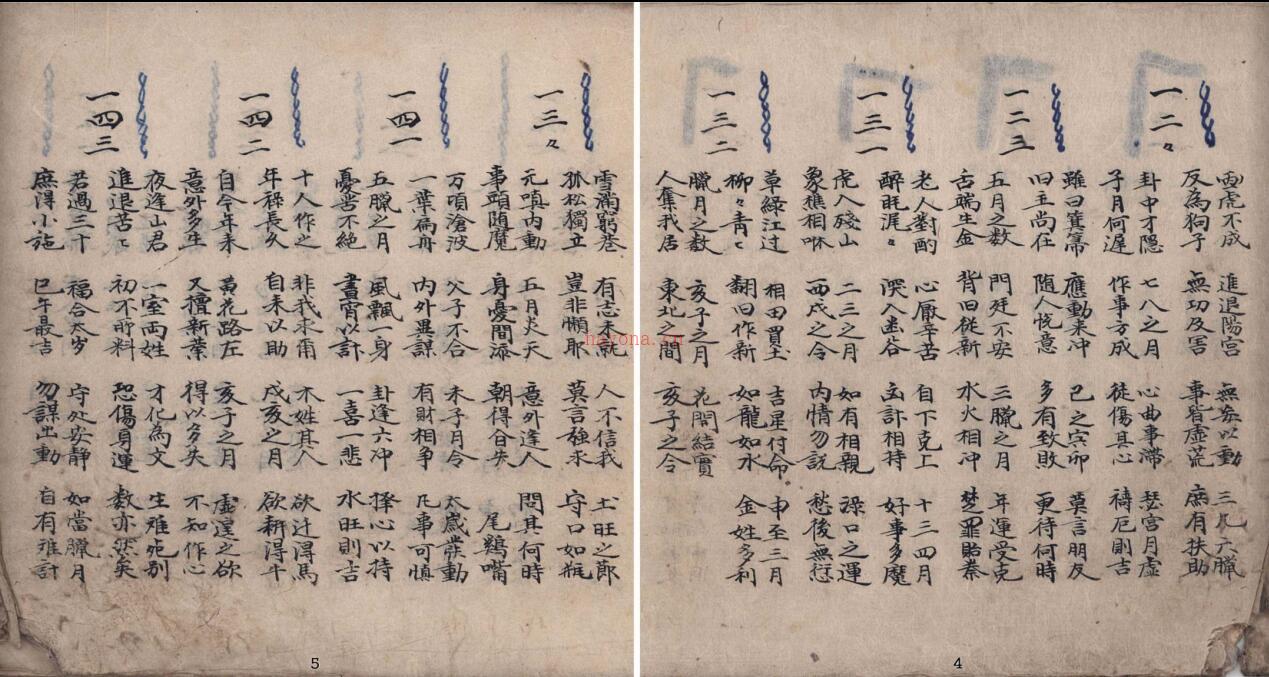 一二々
画虎不成 進退陽宮 無妄以動 三九六臘
反為狗子 無功及害 事皆虛荒 庶有扶助
卦中才隐 七八之月 心曲事滞 宮月虛
子月何遅 作事方成 徒傷其心 禱厄則吉
一二三
雖曰箕箒 應動来冲 己之 卯 莫言朋友
旧主尚在 隨人悅意 多有致敗 更待何時
五月之数 門廷不安 三臘之月 年運受克
舌端生金 背旧從新 水火相冲 楚罪貽秦
一三一
老人對酌 心厭辛苦 自下克上 十三四月
醉既渥々 深入幽谷 相持 好事多魔
虎入殘山 二三之月 如有相親 祿口之運
象樵相咻 西戌之令 内情勿説 愁後無愆
一三二
草綠江过 相田買土 吉星付命 申至三月
柳々青々 翻旧作新 如龍如水 金姓多利
臘月之数 亥子之月 花開結實
人奪我居 東北之間 亥子之令
4
一三々
雪滿窮巷 有志未就 人不信我 土旺之節
孤松獨立 豈非懶耶 莫言強求 守口如瓶
元嗔内動 五月炎天 意外逢人 問其何時
事頭随魔 身憂間添 朝得合失 尾鷄嘴
一四一
万頃滄波 父子不合 未子月令 太歲発動
一葉扁舟 内外異謀 有財相争 凡事可慎
五臘之月 風飄一身 卦逢六冲 擇心以持
憂常不絶 晝宵以訃 一喜一悲 水旺則吉
一四二
十人作之 非我求甯 木姓其人 欲迁得馬
年祿長久 自来以助 戌亥之月 欲耕得牛
自今年来 黃花路左 亥子之月 虛違之欲
意外多生 又擅新業 得以多失 不知作心
一四三
夜逢山君 一室両姓 才化為文 生难死别
進退苦々 初不所料 恐傷身運 数亦然矣
若過三十 福合太岁 守处安静 如當臘月
庶得小施 巳午最吉 勿謀出動 自有难訃
5
hayona.cn